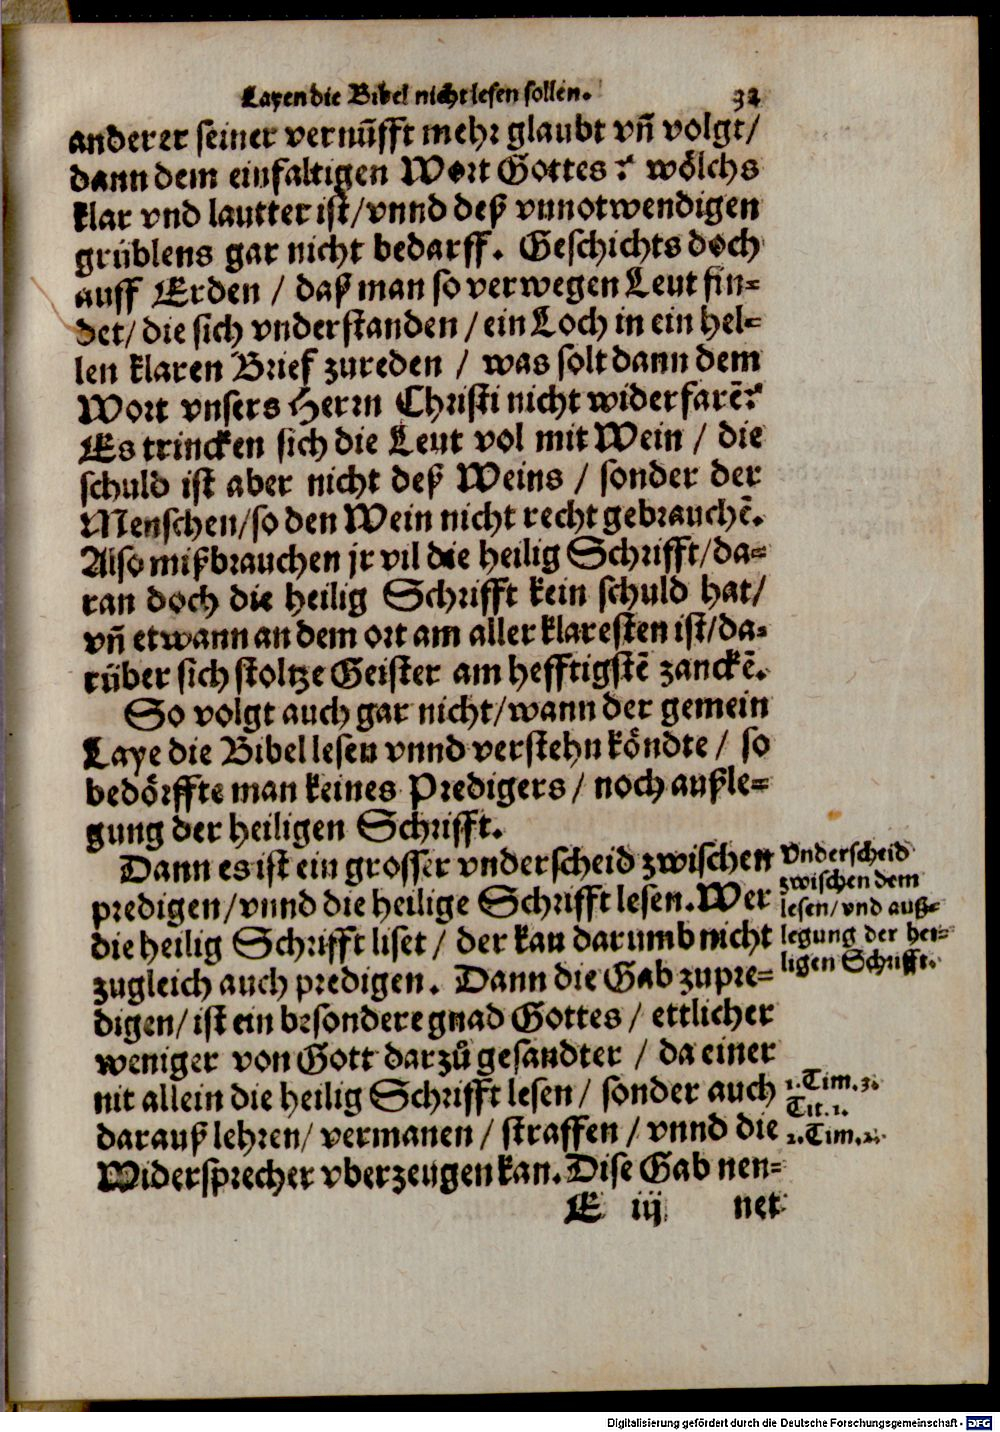 Layen die Bibel nicht lesen sollen. 32
anderer seiner vernũfft mehr glaubt vñ volgt/
dann dem einfaltigen Wort Gottes? wölchs
klar vnd lautter ist/vnnd deß vnnotwendigen
grüblens gar nicht bedarff. Geschichts doch
auff Erden / daß man so verwegen Leut fin-
det/ die sich vnderstanden / ein Loch in ein hel-
len klaren Brief zureden / was solt dann dem
Wort vnsers Herrn Christi nicht widerfarẽ?
Es trincken sich die Leut vol mit Wein / die
schuld ist aber nicht deß Weins / sonder der
Menschen/so den Wein nicht recht gebrauchẽ.
Also mißbrauchen jr vil die heilig Schrifft/da-
ran doch die heilig Schrifft kein schuld hat/
vñ etwann an dem ort am aller klaresten ist/da-
rüber sich stoltze Geister am hefftigstẽ zanckẽ.
So volgt auch gar nicht/wann der gemein
Laye die Bibel lesen vnnd verstehn köndte / so
bedörffte man keines Predigers / noch außle-
gung der heiligen Schrifft.
Dann es ist ein grosser vnderscheid zwischen
predigen/vnnd die heilige Schrifft lesen. Wer
die heilig Schrifft liset / der kan darumb nicht
zugleich auch predigen. Dann die Gab zupre-
digen/ ist ein besondere gnad Gottes / ettlicher
weniger von Gott darzů gesandter / da einer
nit allein die heilig Schrifft lesen / sonder auch
darauß lehren/ vermanen / straffen / vnnd die
Widersprecher vberzeugen kan. Dise Gab nen-
E iij net
Vnderscheid
zwischen dem
lesen/vnd auß-
legung der hei-
ligen Schrifft.
1.Tim.3.
Tit.1.
2.Tim.2.
Digitalisierung gefördert durch die Deutsche Forschungsgemeinschaft - DFG